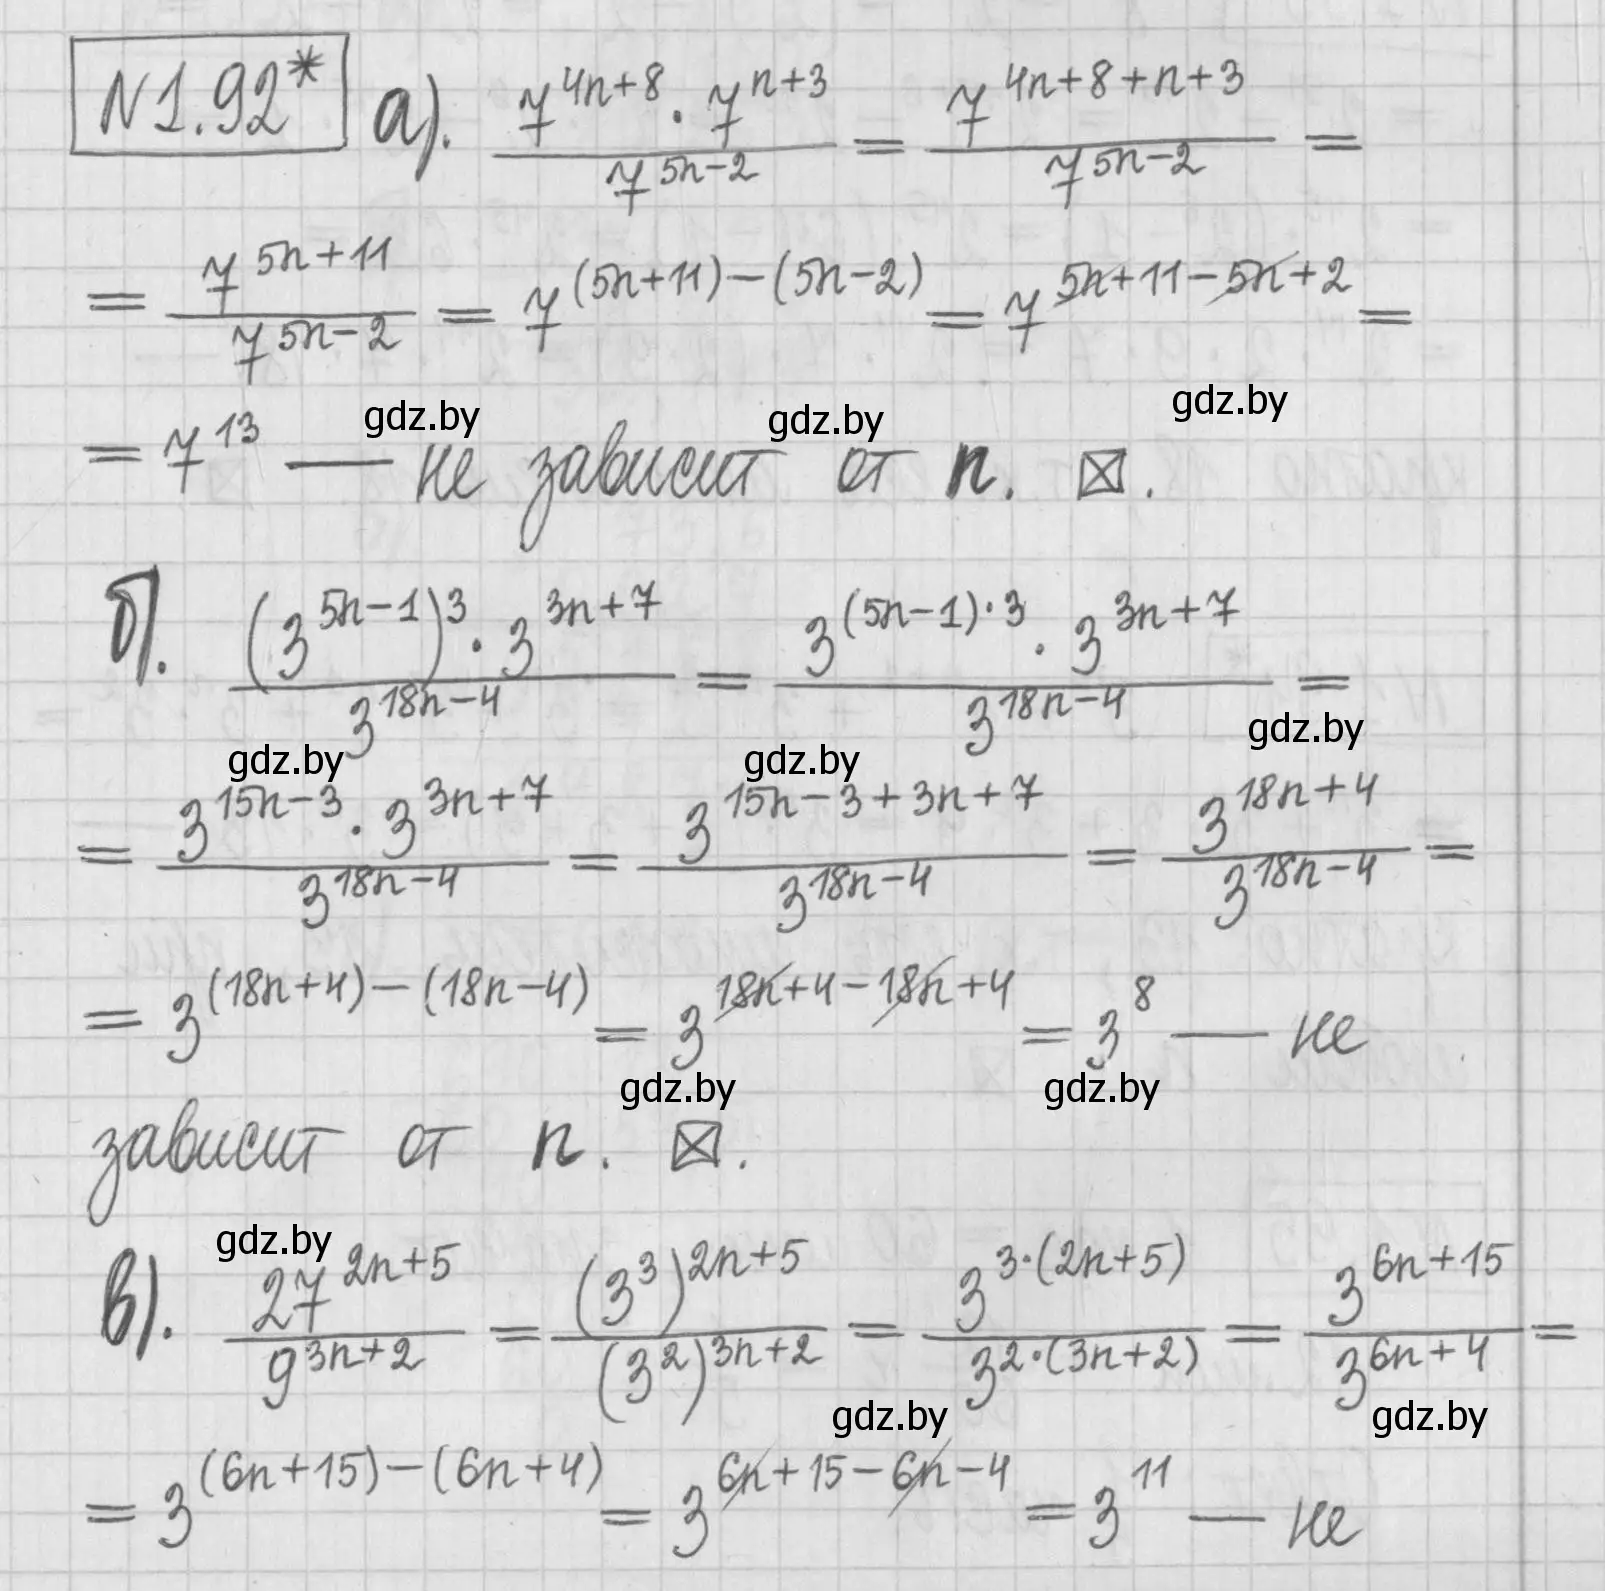 N1.92* а). \frac{7^{4n+8} \cdot 7^{n+3}}{7^{5n-2}} = \frac{7^{4n+8+n+3}}{7^{5n-2}} =
= \frac{7^{5n+11}}{7^{5n-2}} = 7^{(5n+11)-(5n-2)} = 7^{5n+11-5n+2} =
gdz.by gdz.by gdz.by
= 7^{13} — не зависит от n. ⊠.
б). \frac{(3^{5n-1})^3 \cdot 3^{3n+7}}{3^{18n-4}} = \frac{3^{(5n-1)\cdot 3} \cdot 3^{3n+7}}{3^{18n-4}} =
gdz.by gdz.by gdz.by
= \frac{3^{15n-3} \cdot 3^{3n+7}}{3^{18n-4}} = \frac{3^{15n-3+3n+7}}{3^{18n-4}} = \frac{3^{18n+4}}{3^{18n-4}} =
= 3^{(18n+4)-(18n-4)} = 3^{18n+4-18n+4} = 3^8 — не
gdz.by gdz.by
зависит от n. ⊠.
gdz.by
в). \frac{27^{2n+5}}{9^{3n+2}} = \frac{(3^3)^{2n+5}}{(3^2)^{3n+2}} = \frac{3^{3\cdot(2n+5)}}{3^{2\cdot(3n+2)}} = \frac{3^{6n+15}}{3^{6n+4}} =
gdz.by gdz.by
= 3^{(6n+15)-(6n+4)} = 3^{6n+15-6n-4} = 3^{11} — не